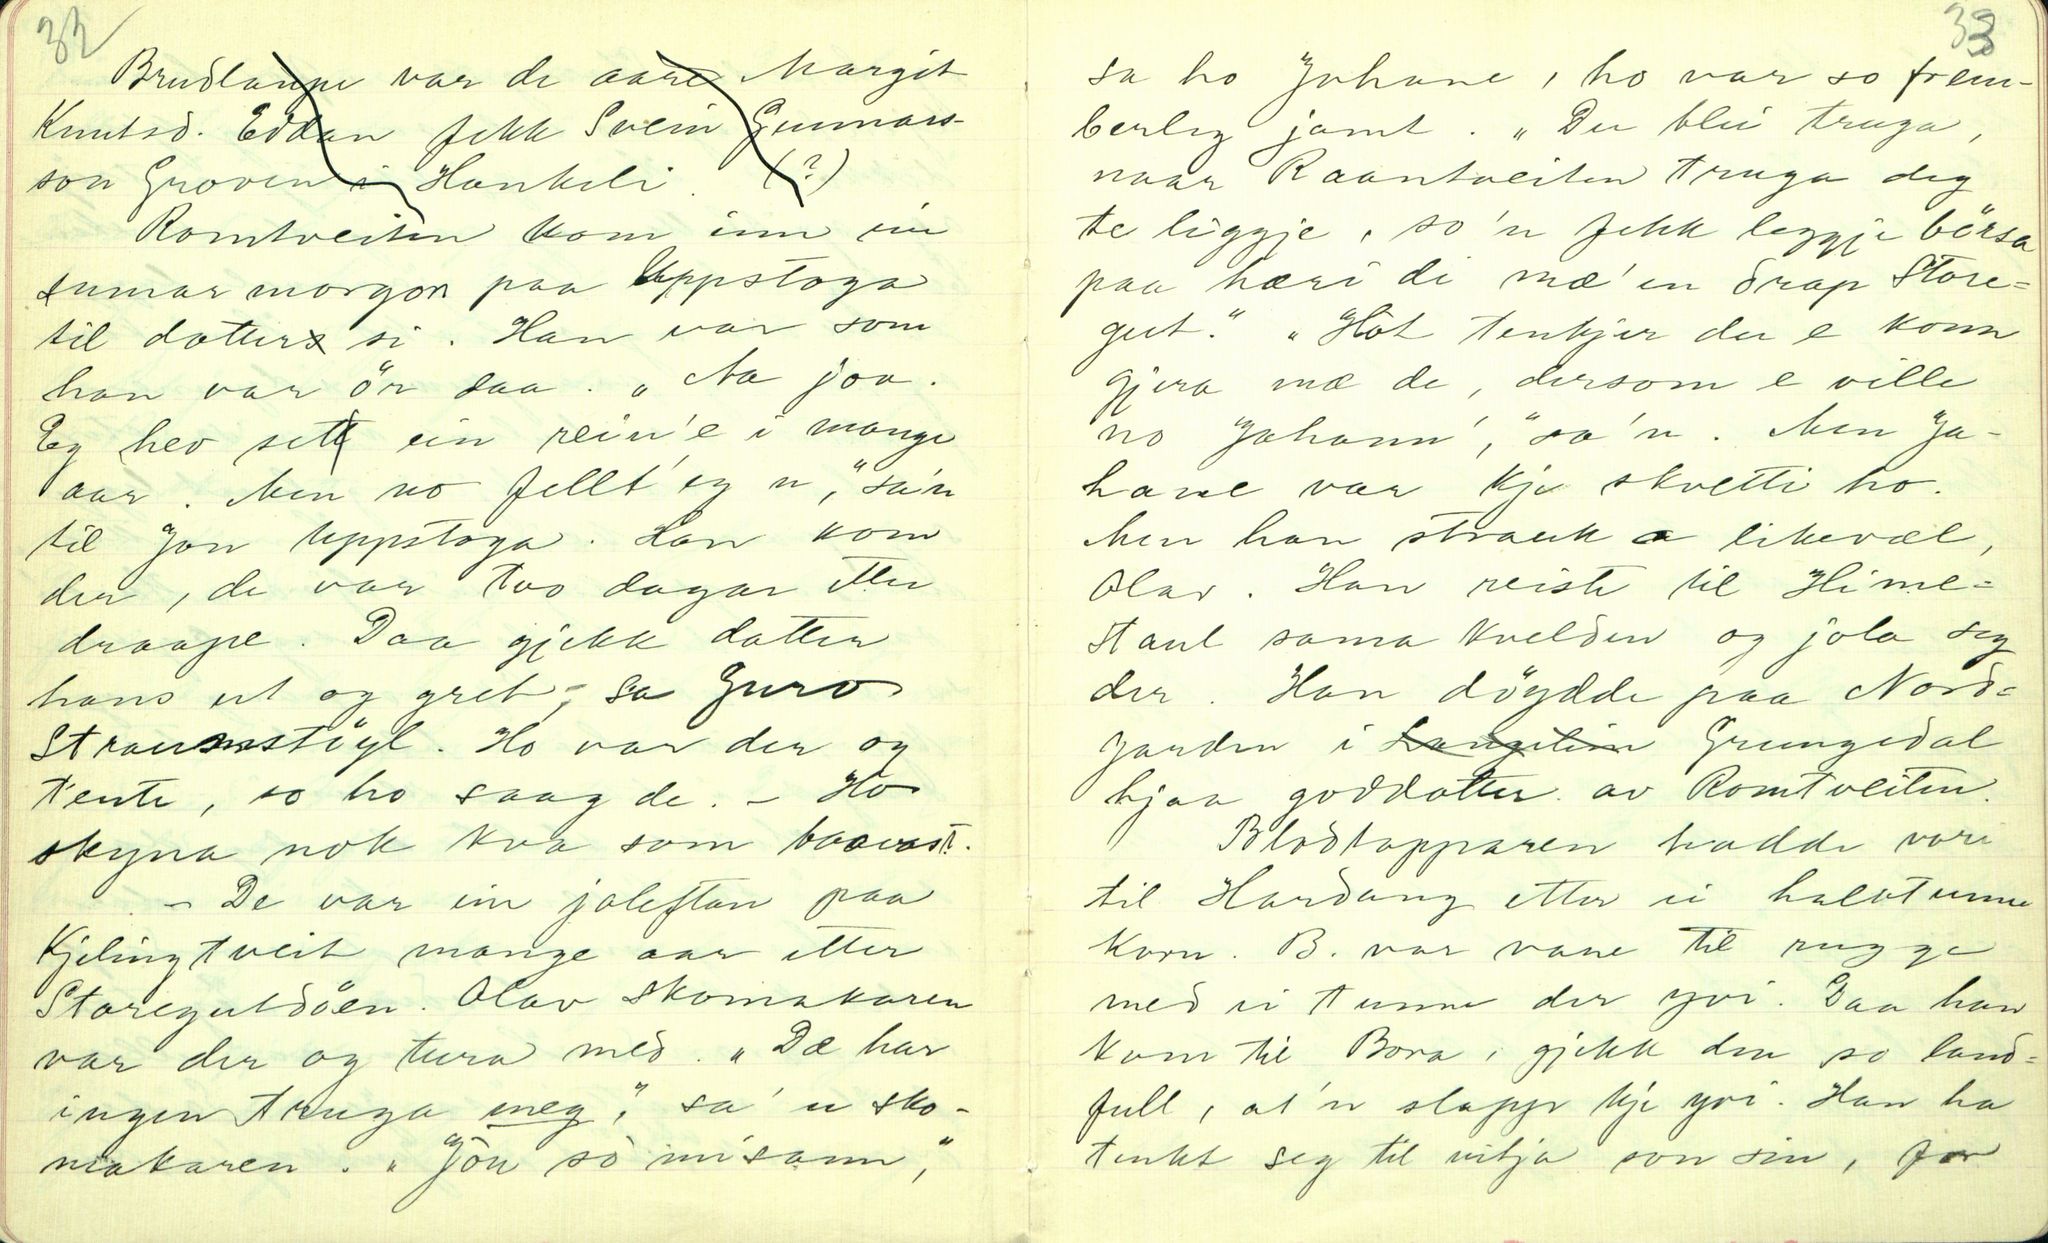 32
Brudlaupe var de aare Margit
Knutsd. Eddan fekk Svein Gunnars-
son Groven i Haukeli. (?)
Romtveiten kom inn ein
sumarmorgon paa Uppstoga
til dotter si. Han var som
han var ör saa. „Na joa.
Eg hev sett ein rein'e i mange
aar. Men no fellt' eg n," sa'n
til Jon Uppstoga. Han kom
der, de var two dagar etter
draape. Daa gjekk dotter
hans ut og gret, sa Guro
Straumstöyl. Ho var der og
tente, so ho saag de. – Ho
skyna nok kva som baavast.
– De var ein joleftan paa
Kjelingtveit mange aar etter
Storegutdöen. Olav Skomakaren
var der og tura med. „Dæ har
ingen truga meg," sa' n sko-
makaren. „Jöu so mi sann,"
33
sa ho Johane, ho var so frem-
berleg jamt. „Du blei truga,
naar Raantveiten truga deg
te liggje, so'n fekk leggje börsa
paa hæri di mæ'en drap Store-
gut." „Hot tenkjer du e konn
gjera mæ de, dersom e ville
no Johann'," sa'n. Men Jo-
hane var kje skvetti ho.
Men han strauk a likevæl,
Olav. Han reiste til Hime-
staul sama kvelden og jola seg
der. Han döydde paa Nord-
garden i Langeliin Grungedal
hjaa goddotter av Romtveiten.
Blodtapparen hadde vori
til Hardang etter ei halvtunne
korn. B. var vane til rugge
med ei tunne der yvi. Daa han
kom til Bora, gjekk den so land-
full, at'n slapp kje yvi. Han ha
tenkt seg til vitja son sin, for